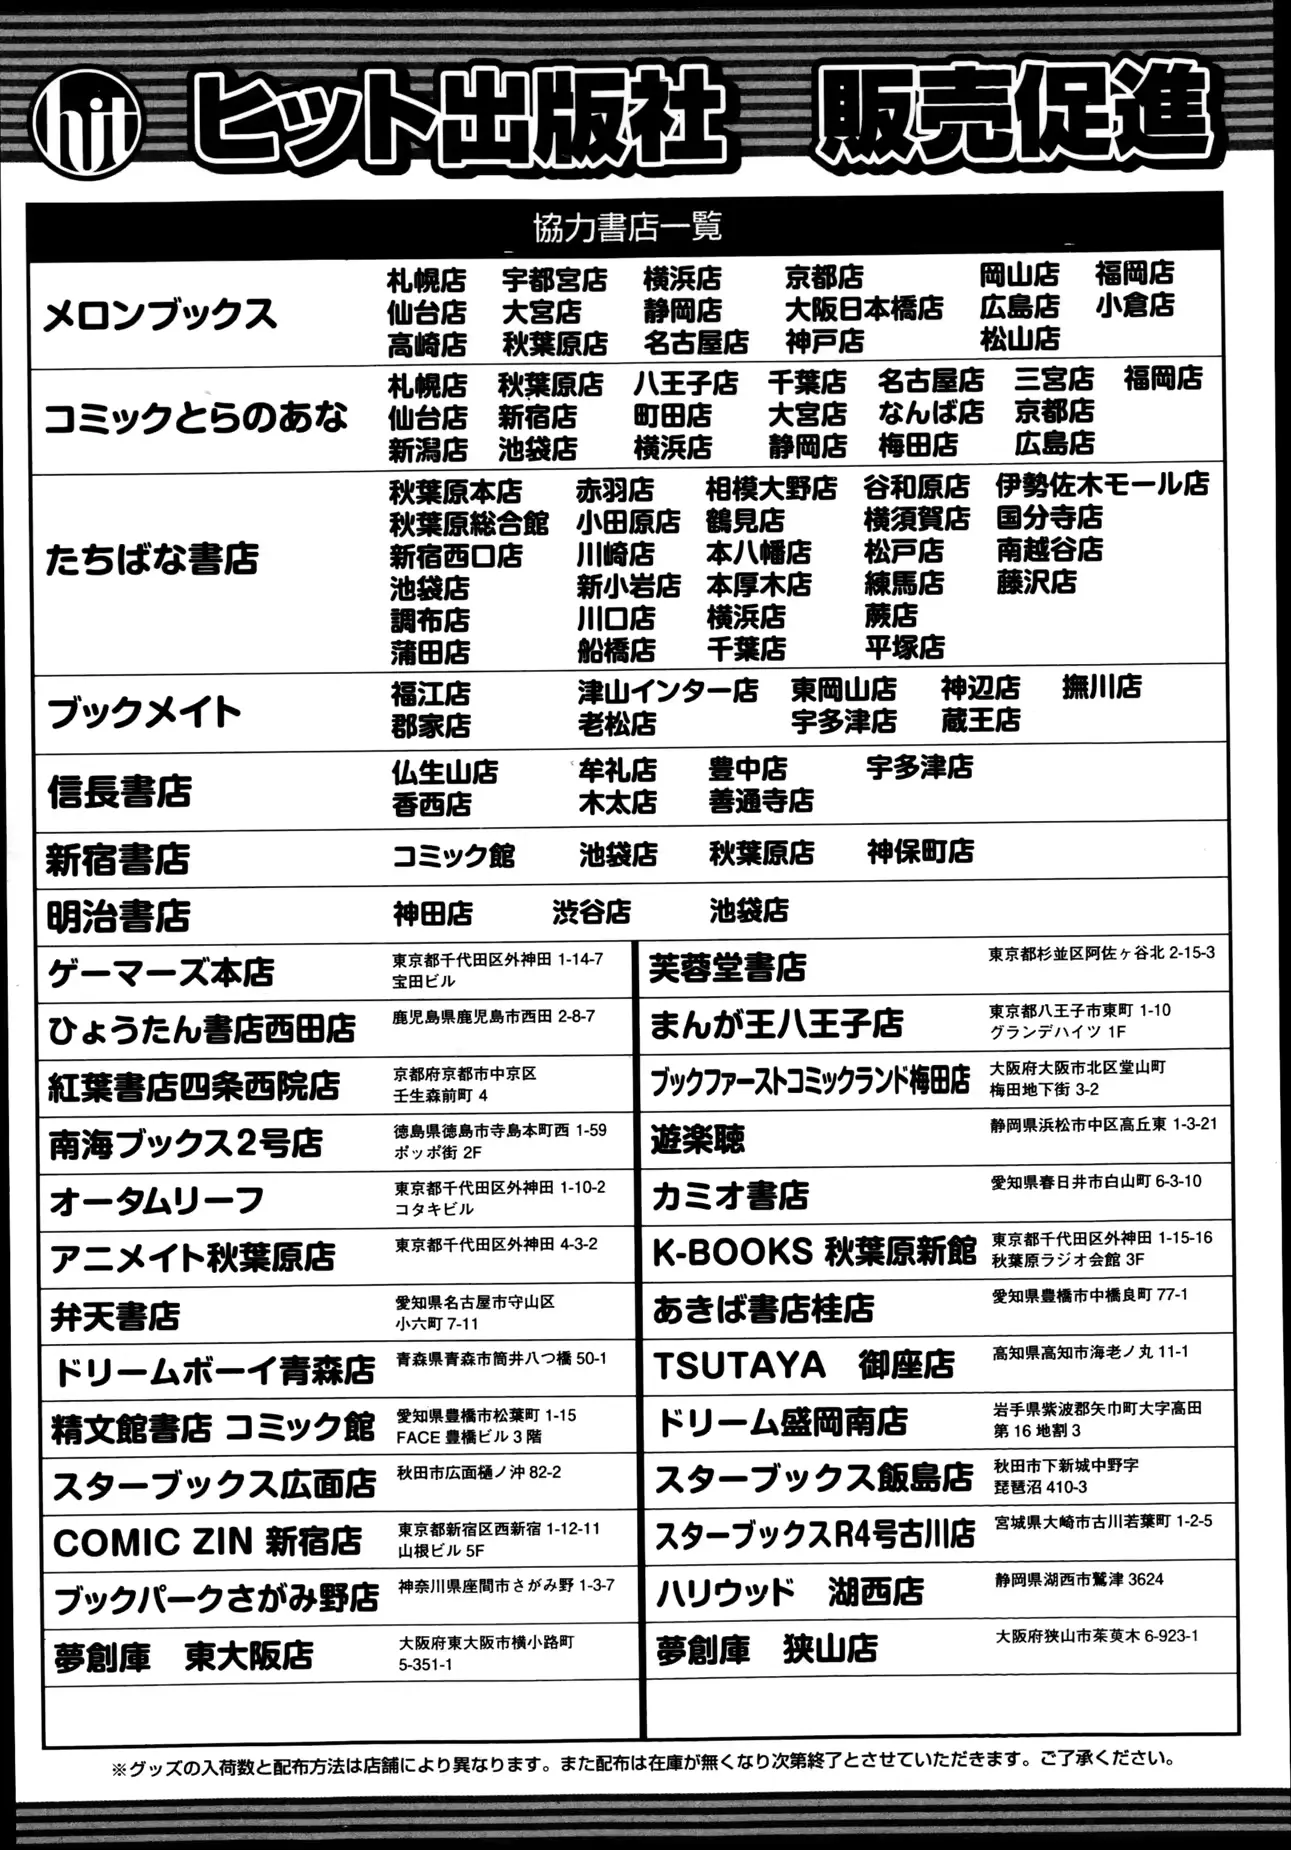 hit ヒット出版社 販売促進
協力書店一覧
メロンブックス
札幌店 宇都宮店 横浜店 京都店 岡山店 福岡店
仙台店 大宮店 静岡店 大阪日本橋店 広島店 小倉店
高崎店 秋葉原店 名古屋店 神戸店 松山店
コミックとらのあな
札幌店 秋葉原店 八王子店 千葉店 名古屋店 三宮店 福岡店
仙台店 新宿店 町田店 大宮店 なんば店 京都店
新潟店 池袋店 横浜店 静岡店 梅田店 広島店
たちばな書店
秋葉原本店 赤羽店 相模大野店 谷和原店 伊勢佐木モール店
秋葉原総合館 小田原店 鶴見店 横須賀店 国分寺店
新宿西口店 川崎店 本八幡店 松戸店 南越谷店
池袋店 新小岩店 本厚木店 練馬店 藤沢店
調布店 川口店 横浜店 蕨店
蒲田店 船橋店 千葉店 平塚店
ブックメイト
福江店 津山インター店 東岡山店 神辺店 撫川店
郡家店 老松店 宇多津店 蔵王店
信長書店
仏生山店 牟礼店 豊中店 宇多津店
香西店 木太店 善通寺店
新宿書店
コミック館 池袋店 秋葉原店 神保町店
明治書店
神田店 渋谷店 池袋店
ゲーマーズ本店
東京都千代田区外神田 1-14-7
宝田ビル
芙蓉堂書店
東京都杉並区阿佐ヶ谷北 2-15-3
ひょうたん書店西田店
鹿児島県鹿児島市西田 2-8-7
まんが王八王子店
東京都八王子市東町 1-10
グランデハイツ 1F
紅葉書店四条西院店
京都府京都市中京区
壬生森前町 4
ブックファーストコミックランド梅田店
大阪府大阪市北区堂山町
梅田地下街 3-2
南海ブックス2号店
徳島県徳島市寺島本町西 1-59
ポッポ街 2F
遊楽聴
静岡県浜松市中区高丘東 1-3-21
オータムリーフ
東京都千代田区外神田 1-10-2
コタキビル
カミオ書店
愛知県春日井市白山町 6-3-10
アニメイト秋葉原店
東京都千代田区外神田 4-3-2
K-BOOKS 秋葉原新館
東京都千代田区外神田 1-15-16
秋葉原ラジオ会館 3F
弁天書店
愛知県名古屋市守山区
小六町 7-11
あきば書店桂店
愛知県豊橋市中橋良町 77-1
ドリームボーイ青森店
青森県青森市筒井八つ橋 50-1
TSUTAYA 御座店
高知県高知市海老ノ丸 11-1
精文館書店 コミック館
愛知県豊橋市松葉町 1-15
FACE 豊橋ビル 3 階
ドリーム盛岡南店
岩手県紫波郡矢巾町大字高田
第 16 地割 3
スターブックス広面店
秋田市広面樋ノ沖 82-2
スターブックス飯島店
秋田市下新城中野字
琵琶沼 410-3
COMIC ZIN 新宿店
東京都新宿区西新宿 1-12-11
山根ビル 5F
スターブックスR4号古川店
宮城県大崎市古川若葉町 1-2-5
ブックパークさがみ野店
神奈川県座間市さがみ野 1-3-7
ハリウッド 湖西店
静岡県湖西市鷲津 3624
夢創庫 東大阪店
大阪府東大阪市横小路町
5-351-1
夢創庫 狭山店
大阪府狭山市茱萸木 6-923-1
※グッズの入荷数と配布方法は店舗により異なります。また配布は在庫が無くなり次第終了とさせていただきます。ご了承ください。